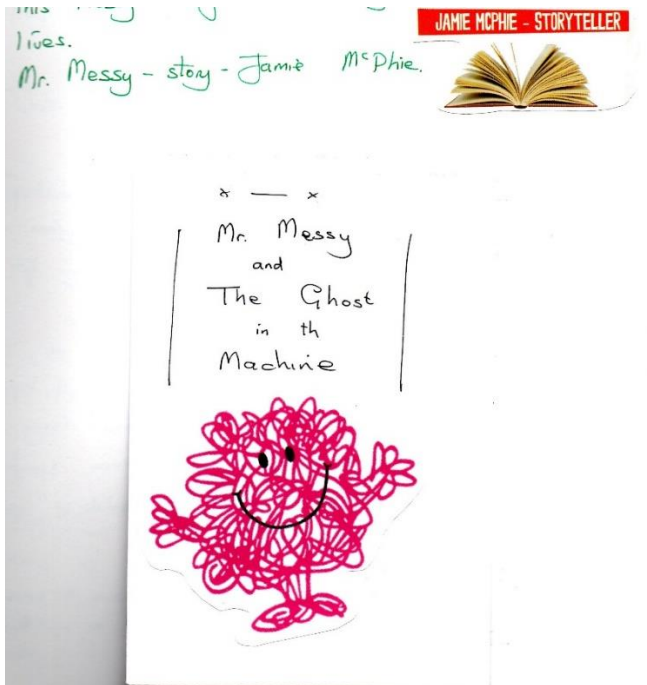 lives.
Mr. Messy - story - Jamie McPhie.
JAMIE MCPHIE - STORYTELLER
Mr. Messy
and
The Ghost
in th
Machine